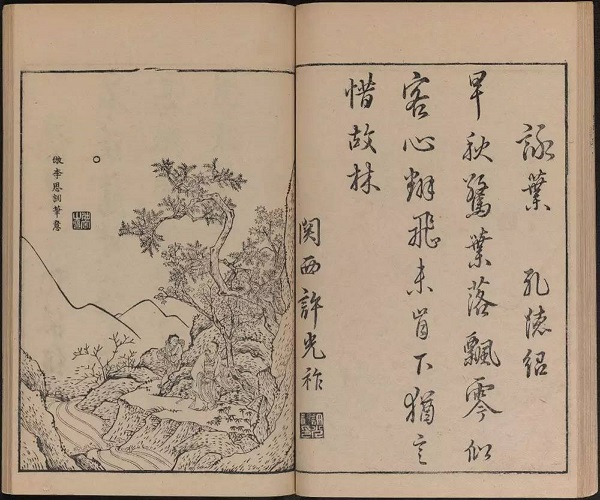 詠葉　孔德紹
早秋驚葉落飄零似
客心翻飛未肯下猶言
惜故林
関西許光祚
倣李思訓筆意